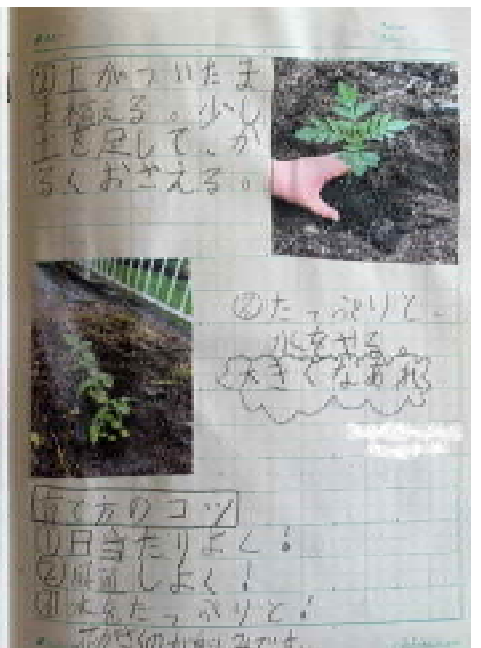 土がついたま
ま植える。少し
土を足して、か
るくおさえる。
②たっぷりと、
水をやる。
大きくなあれ
育て方のコツ
①日当たりよく!
②風通しよく!
③水をたっぷりと!